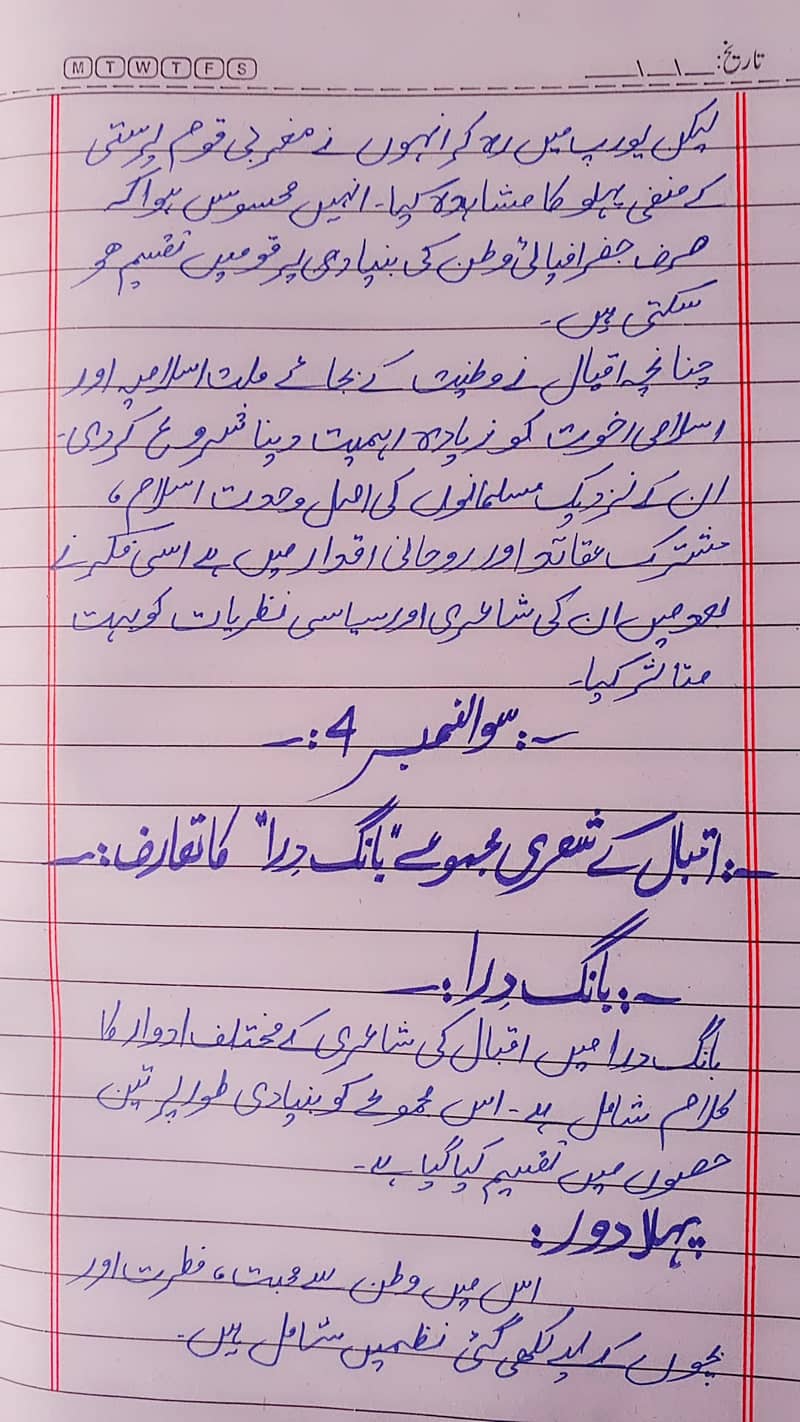 M T W T F S
تاریخ: __\__\__
لیکن یورپ میں رہ کر انہوں نے مغربی قوم پرستی
کے منفی پہلو کا مشاہدہ کیا۔ انہیں محسوس ہوا کہ
صرف جغرافیائی وطن کی بنیاد ہی پر قومیں تقسیم ہو
سکتی ہیں۔
چنانچہ اقبال نے وطنیت کے بجائے ملت اسلامیہ اور
اسلامی اخوت کو زیادہ اہمیت دینا شروع کر دی۔
ان کے نزدیک مسلمانوں کی اصل وحدت اسلام ،
مشترک عقائد اور روحانی اقدار میں ہے اسی فکر نے
بعد میں ان کی شاعری اور سیاسی نظریات کو بہت
متاثر کیا۔
سوال نمبر 4:
اقبال کے شعری مجموعے "بانگ دِرا" کا تعارف:
بانگ دِرا:
بانگ درا میں اقبال کی شاعری کے مختلف ادوار کا
کلام شامل ہے۔ اس مجموعے کو بنیادی طور پر تین
حصوں میں تقسیم کیا گیا ہے۔
پہلا دور:
اس میں وطن سے محبت ، فطرت اور
بچوں کے لیے لکھی گئی نظمیں شامل ہیں۔